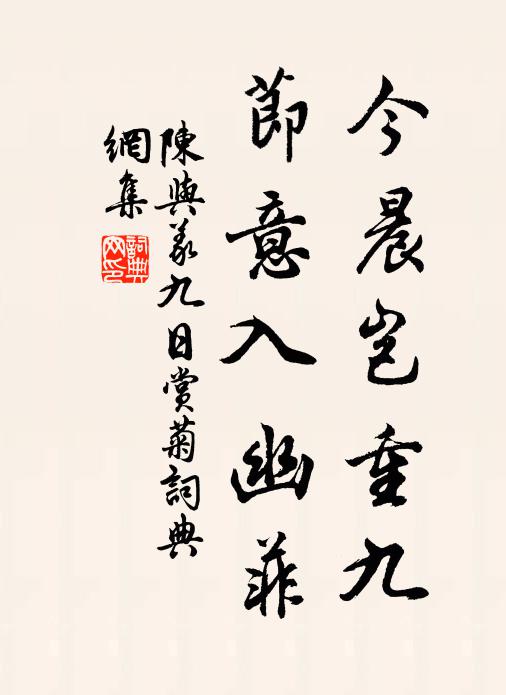 今晨豈重九
節意入幽菲
陳與義九日賞菊詞典
網集
詞典
网印